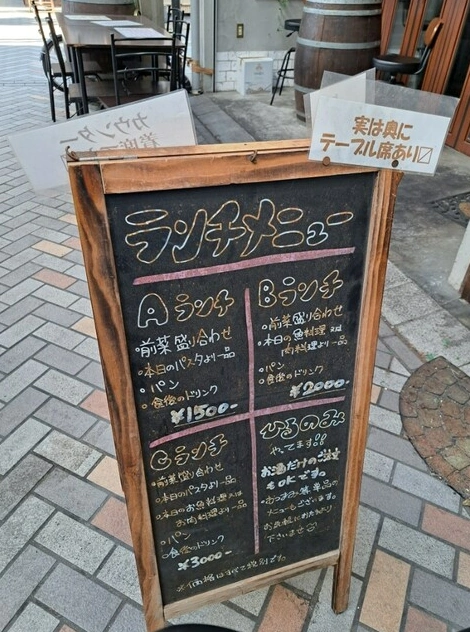 実は奥に
テーブル席あり〼
ランチメニュー
Aランチ
・前菜盛り合わせ
・本日のパスタより一品
・パン
・食後のドリンク
¥1500-
Bランチ
・前菜盛り合わせ
・本日の魚料理又は
肉料理より一品
・パン
・食後のドリンク
¥2000-
Cランチ
・前菜盛り合わせ
・本日のパスタより一品
・本日のお魚料理又は
お肉料理より一品
・パン
・食後のドリンク
¥3000-
ひるのみ
やってます!!
お酒だけのご注文
もOKです。
メニューもございます。
お気軽にお
下さいませ
※価格はすべて税別です。